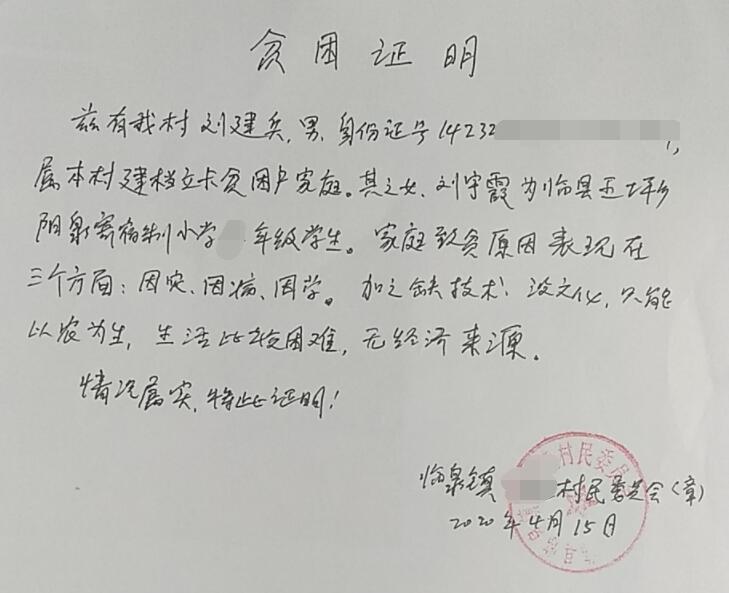 贫困证明
兹有我村刘建兵,男,身份证号14232
属本村建档立卡贫困户家庭。其之女、刘宇霞为临县玉坪乡
阳泉寄宿制小学 年级学生。家庭致贫原因表现在
三个方面:因灾、因病、因学。加之缺技术、没文化,只能
以农为生,生活比较困难,无经济来源。
情况属实,特此证明!
临泉镇 村民委员会(章)
2020年4月15日
村民委员